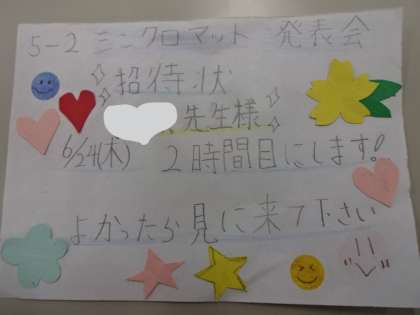 5-2 ミンクロマット 発表会
招待状
先生様
6/24(木) 2時間目にします!
よかったら見に来て下さい